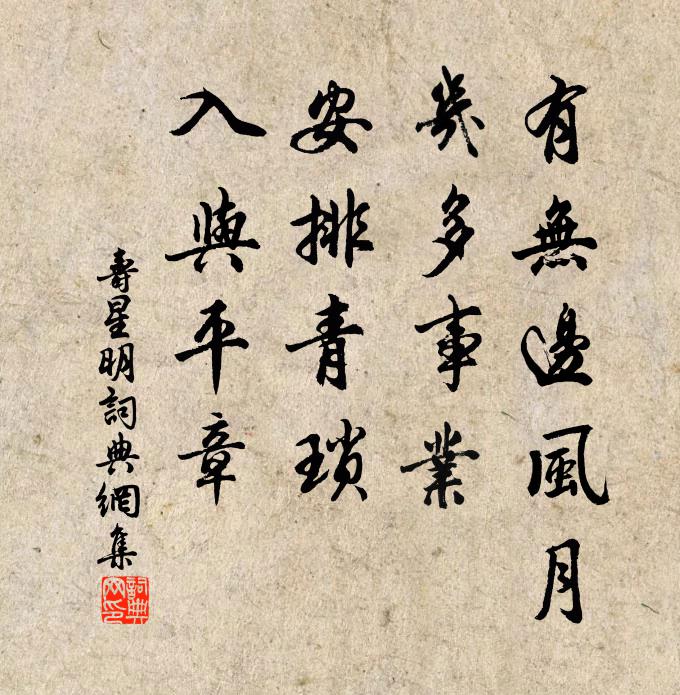 有無邊風月
幾多事業
安排青瑣
入與平章
壽星明詞典網集
詞典网印